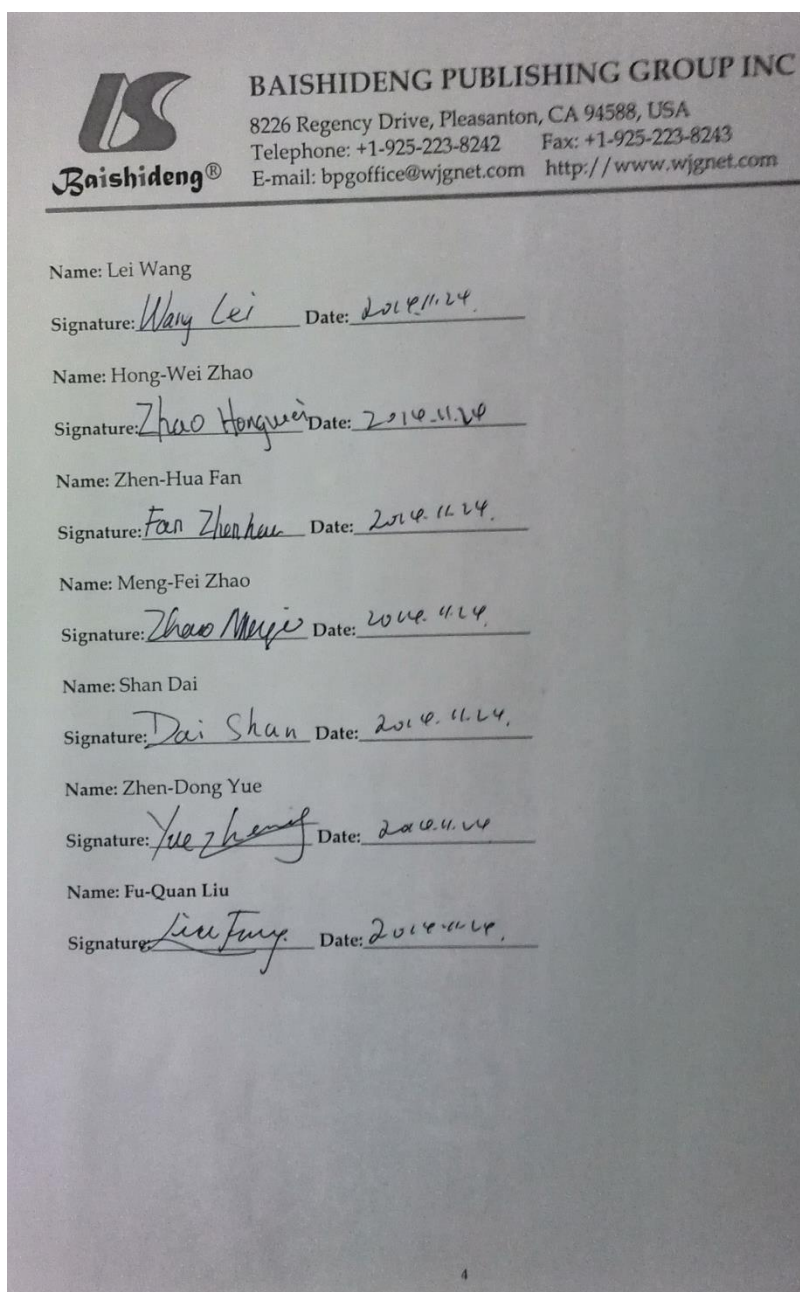 BAISHIDENG PUBLISHING GROUP INC
8226 Regency Drive, Pleasanton, CA 94588, USA
Telephone: +1-925-223-8242 Fax: +1-925-223-8243
E-mail: bpgoffice@wjgnet.com http://www.wjgnet.com
Baishideng®
Name: Lei Wang
Signature: Wang Lei Date: 2014.11.24.
Name: Hong-Wei Zhao
Signature: Zhao Hongwei Date: 2014.11.24
Name: Zhen-Hua Fan
Signature: Fan Zhenhua Date: 2014.11.24.
Name: Meng-Fei Zhao
Signature: Zhao Date: 2014.11.24.
Name: Shan Dai
Signature: Dai Shan Date: 2014.11.24.
Name: Zhen-Dong Yue
Signature: Yue Date: 2014.11.24
Name: Fu-Quan Liu
Signature: Liu Date: 2014.11.24.
4